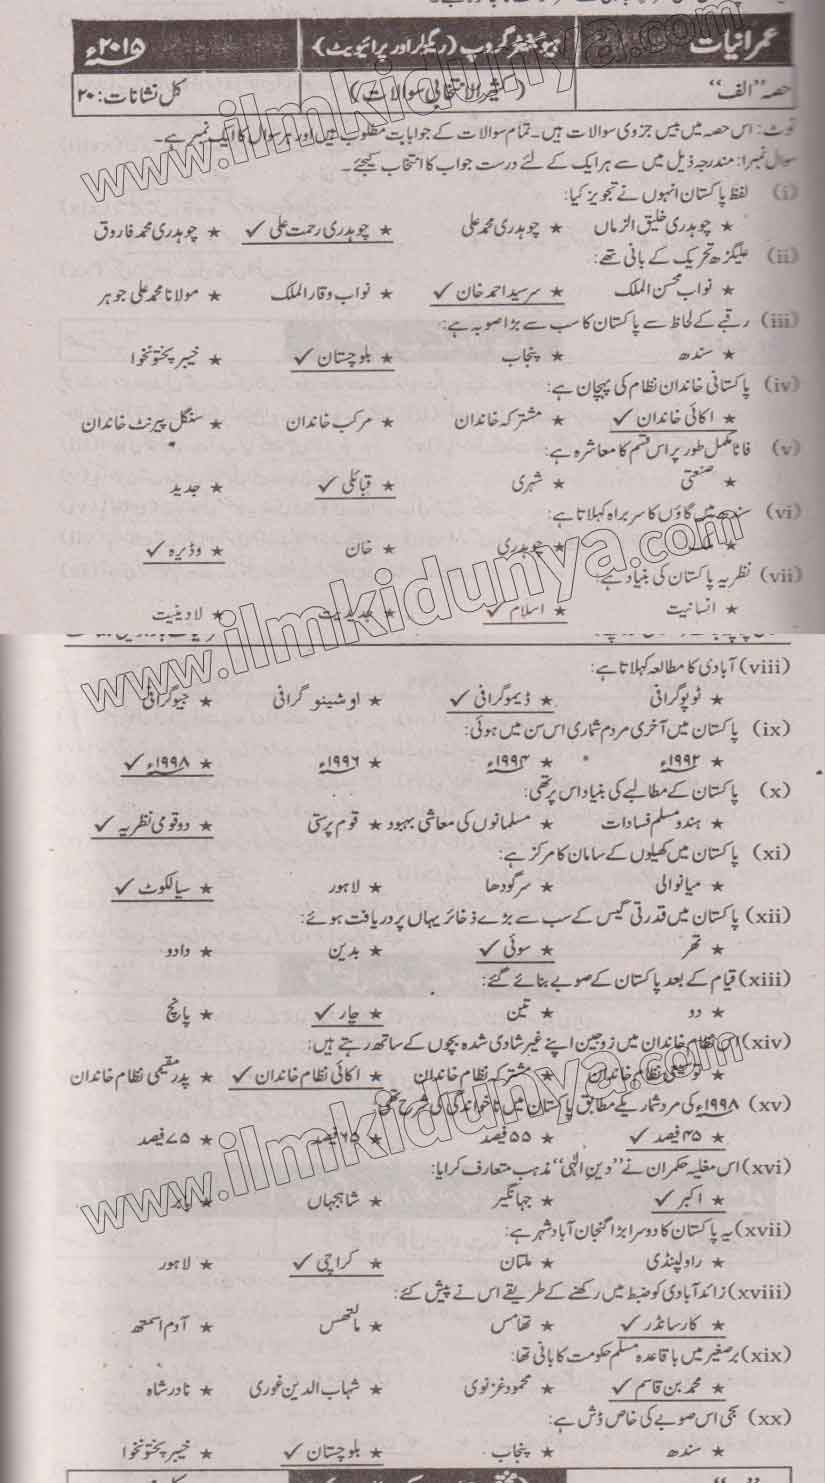 عمرانیات ہیومنٹیز گروپ (ریگولر اور پرائیویٹ) ۲۰۱۵ء
حصہ "الف" (کثیر الانتخابی سوالات) کل نشانات: ۲۰
نوٹ: اس حصہ میں بیس جزوی سوالات ہیں۔ تمام سوالات کے جوابات مطلوب ہیں اور ہر سوال کا ایک نمبر ہے۔
سوال نمبر ۱: مندرجہ ذیل میں سے ہر ایک کے لئے درست جواب کا انتخاب کیجئے۔
(i) لفظ پاکستان انہوں نے تجویز کیا:
★ چوہدری خلیق الزماں ★ چوہدری محمد علی ★ چوہدری رحمت علی ✓ ★ چوہدری محمد فاروق
(ii) علیگڑھ تحریک کے بانی تھے:
★ نواب محسن الملک ★ سرسید احمد خان ✓ ★ نواب وقار الملک ★ مولانا محمد علی جوہر
(iii) رقبے کے لحاظ سے پاکستان کا سب سے بڑا صوبہ ہے:
★ سندھ ★ پنجاب ★ بلوچستان ✓ ★ خیبر پختونخوا
(iv) پاکستانی خاندان نظام کی پہچان ہے:
★ اکائی خاندان ✓ ★ مشترکہ خاندان ★ مرکب خاندان ★ سنگل پیرنٹ خاندان
(v) فاٹا مکمل طور پر اس قسم کا معاشرہ ہے:
★ صنعتی ★ شہری ★ قبائلی ✓ ★ جدید
(vi) سندھ میں گاؤں کا سربراہ کہلاتا ہے:
★ ملک ★ چوہدری ★ خان ★ وڈیرہ ✓
(vii) نظریہ پاکستان کی بنیاد ہے:
★ انسانیت ★ اسلام ✓ ★ جدیدیت ★ لادینیت
(viii) آبادی کا مطالعہ کہلاتا ہے:
★ ٹوپوگرافی ★ ڈیموگرافی ✓ ★ اوشینوگرافی ★ جیوگرافی
(ix) پاکستان میں آخری مردم شماری اس سن میں ہوئی:
★ ۱۹۹۲ء ★ ۱۹۹۴ء ★ ۱۹۹۶ء ★ ۱۹۹۸ء ✓
(x) پاکستان کے مطالبے کی بنیاد اس پر تھی:
★ ہندو مسلم فسادات ★ مسلمانوں کی معاشی بہبود ★ قوم پرستی ★ دو قومی نظریہ ✓
(xi) پاکستان میں کھیلوں کے سامان کا مرکز ہے:
★ میانوالی ★ سرگودھا ★ لاہور ★ سیالکوٹ ✓
(xii) پاکستان میں قدرتی گیس کے سب سے بڑے ذخائر یہاں پر دریافت ہوئے:
★ تھر ★ سوئی ✓ ★ بدین ★ دادو
(xiii) قیام کے بعد پاکستان کے صوبے بنائے گئے:
★ دو ★ تین ★ چار ✓ ★ پانچ
(xiv) اس نظام خاندان میں زوجین اپنے غیر شادی شدہ بچوں کے ساتھ رہتے ہیں:
★ توسیعی نظام خاندان ★ مشترکہ نظام خاندان ★ اکائی نظام خاندان ✓ ★ پدر مقیمی نظام خاندان
(xv) ۱۹۹۸ء کی مردم شماری کے مطابق پاکستان میں ناخواندگی کی شرح تھی:
★ ۴۵ فیصد ✓ ★ ۵۵ فیصد ★ ۶۵ فیصد ★ ۷۵ فیصد
(xvi) اس مغلیہ حکمران نے "دین الٰہی" مذہب متعارف کرایا:
★ اکبر ✓ ★ جہانگیر ★ شاہجہاں ★ بابر
(xvii) یہ پاکستان کا دوسرا بڑا گنجان آباد شہر ہے:
★ راولپنڈی ★ ملتان ★ کراچی ✓ ★ لاہور
(xviii) زائد آبادی کو ضبط میں رکھنے کے طریقے اس نے پیش کئے:
★ کارسانڈر ✓ ★ تھامس ★ مالتھس ★ آدم اسمتھ
(xix) برصغیر میں باقاعدہ مسلم حکومت کا بانی تھا:
★ محمد بن قاسم ✓ ★ محمود غزنوی ★ شہاب الدین غوری ★ نادر شاہ
(xx) سجی اس صوبے کی خاص ڈش ہے:
★ سندھ ★ پنجاب ★ بلوچستان ✓ ★ خیبر پختونخوا
www.ilmkidunya.com
www.ilmkidunya.com
www.ilmkidunya.com